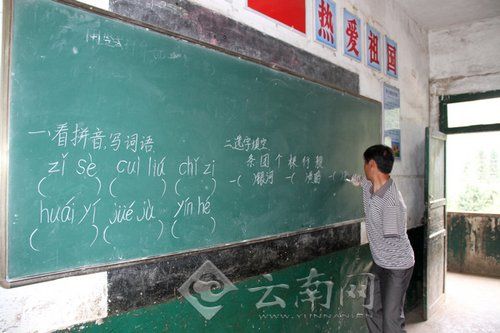 热爱祖国
一、看拼音,写词语
zǐ sè cuī liú chǐ zi
( ) ( ) ( )
huái yí jué jù yín hé
( ) ( ) ( )
二、选字填空
条 团 个 枝 行 颗
一( )银河 一(
云南网
WWW.YUNNAN.CN